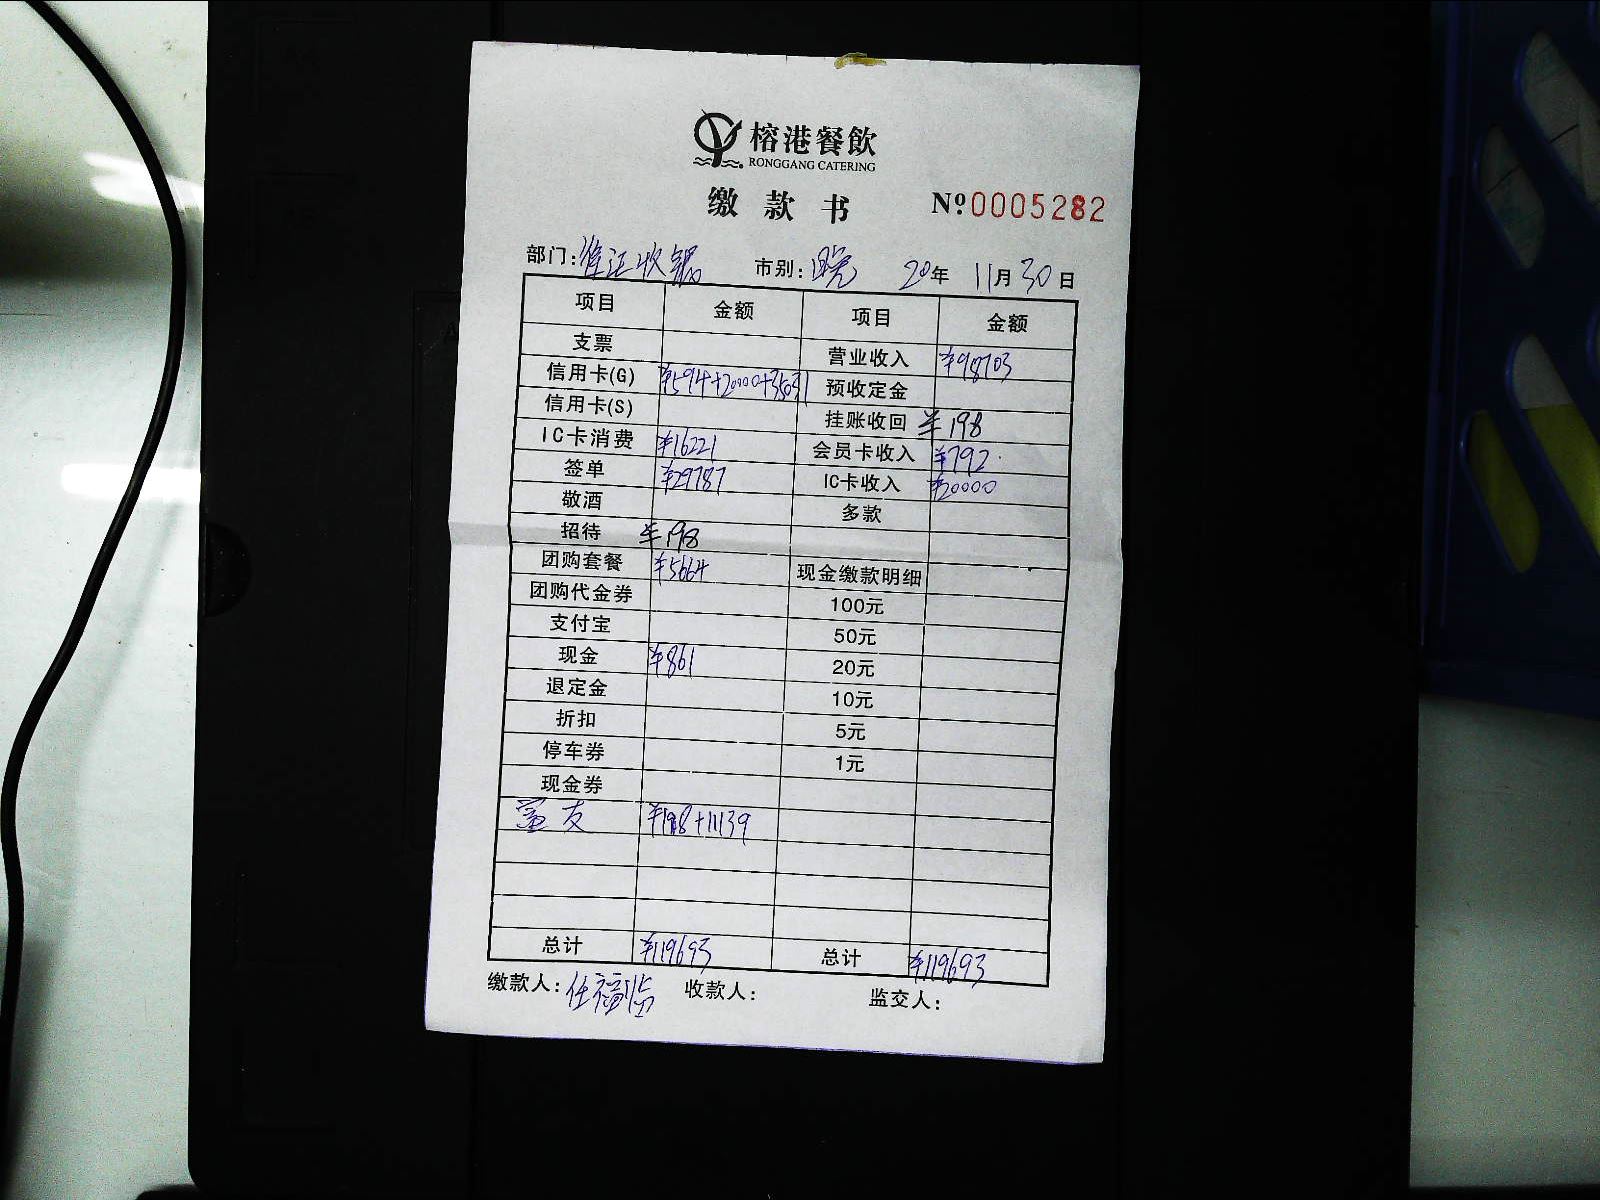 榕港餐飲
RONGGANG CATERING
缴款书 Nº 0005282
部门: 收银 市别: 晚 20年 11月30日
项目 金额 项目 金额
支票 营业收入 ¥98703
信用卡(G) ¥594+20000+35031 预收定金
信用卡(S) 挂账收回 ¥198
IC卡消费 ¥16221 会员卡收入 ¥792
签单 ¥29787 IC卡收入 ¥20000
敬酒 多款
招待 ¥198
团购套餐 ¥5664 现金缴款明细
团购代金券 100元
支付宝 50元
现金 ¥861 20元
退定金 10元
折扣 5元
停车券 1元
现金券
富友 ¥198+11139
总计 ¥119693 总计 ¥119693
缴款人: 任福临 收款人: 监交人: